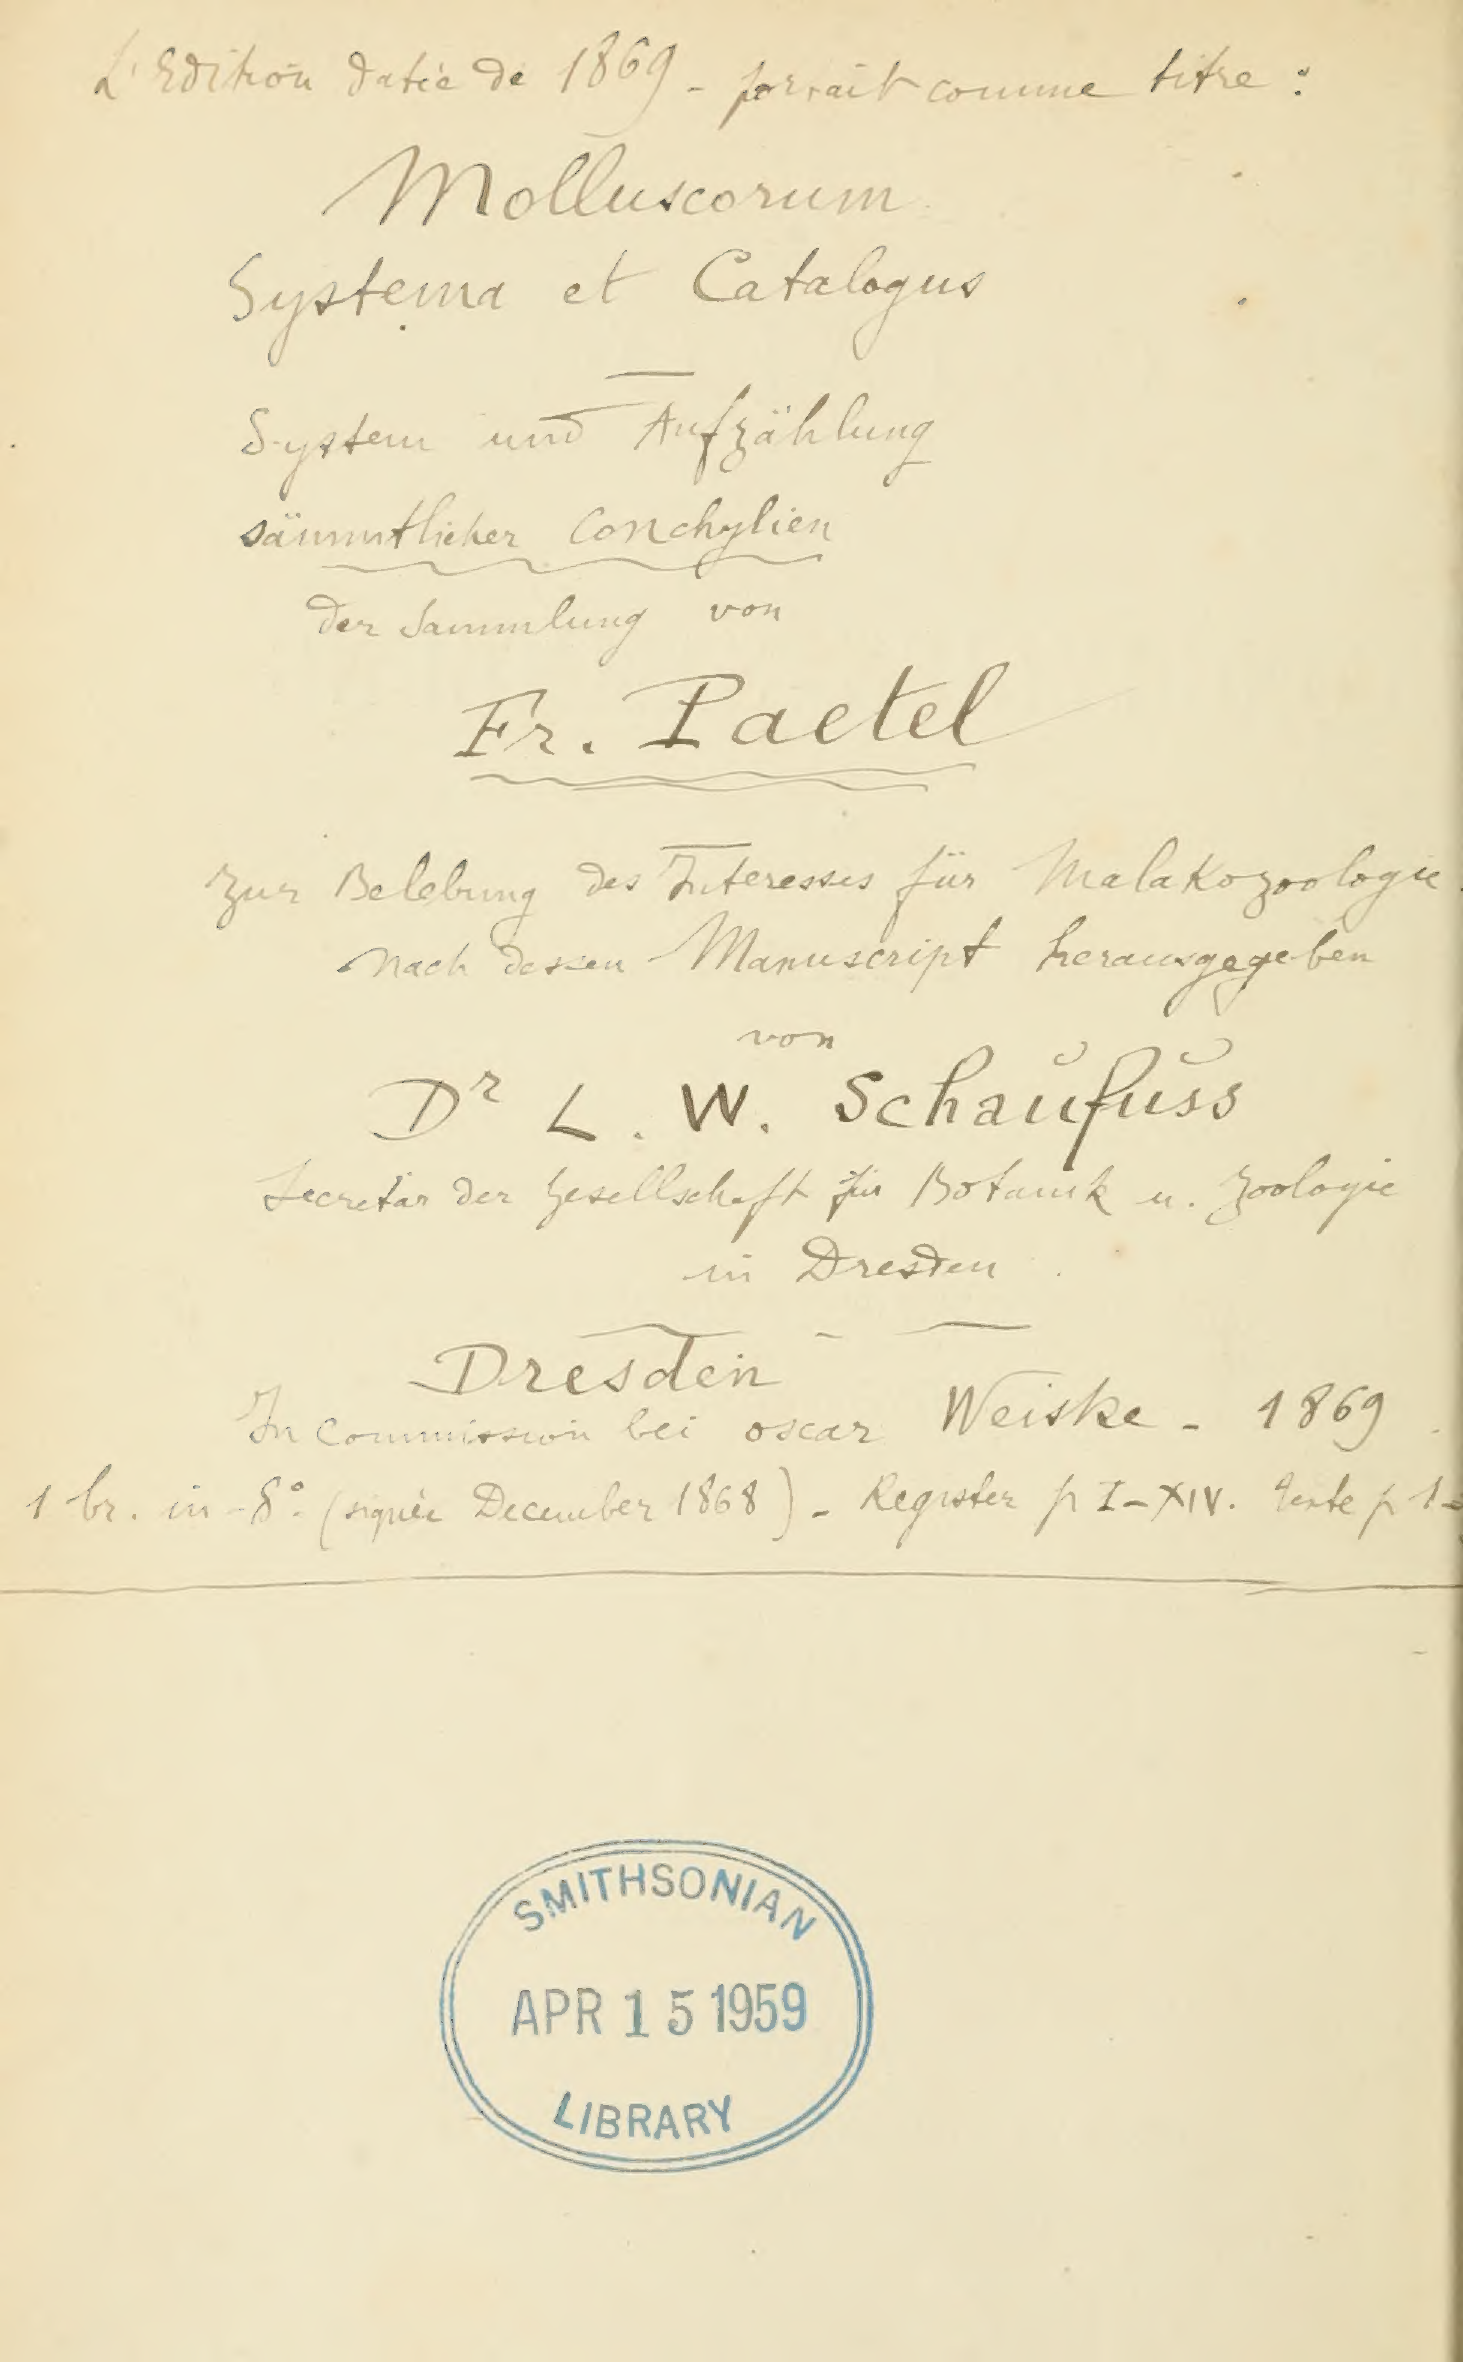 L'Edition datée de 1869 - portait comme titre :
Molluscorum
Systema et Catalogus
System und Aufzählung
sämmtlicher Conchylien
der Sammlung von
Fr. Paetel
Zur Belebung des Interesses für Malakozoologie
nach dessen Manuscript herausgegeben
von
Dr L. W. Schaŭfŭss
Secretär der Gesellschaft für Botanik u. Zoologie
in Dresden
Dresden
In Commission bei oscar Weiske - 1869
1 br. in-8° (signée December 1868) - Register p I-XIV. Texte p 1-
SMITHSONIAN
APR 15 1959
LIBRARY